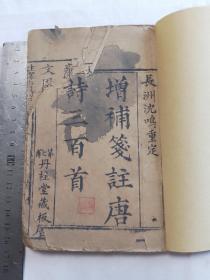 長洲沈鳴重定
增補箋註唐
詩三百首
文
丹桂堂藏板